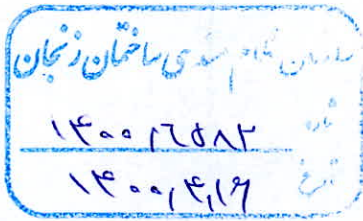 سازمان نظام مهندسی ساختمان زنجان
شماره ۱۴۰۰/۶۵۸۲
تاریخ ۱۴۰۰/۴/۱۶